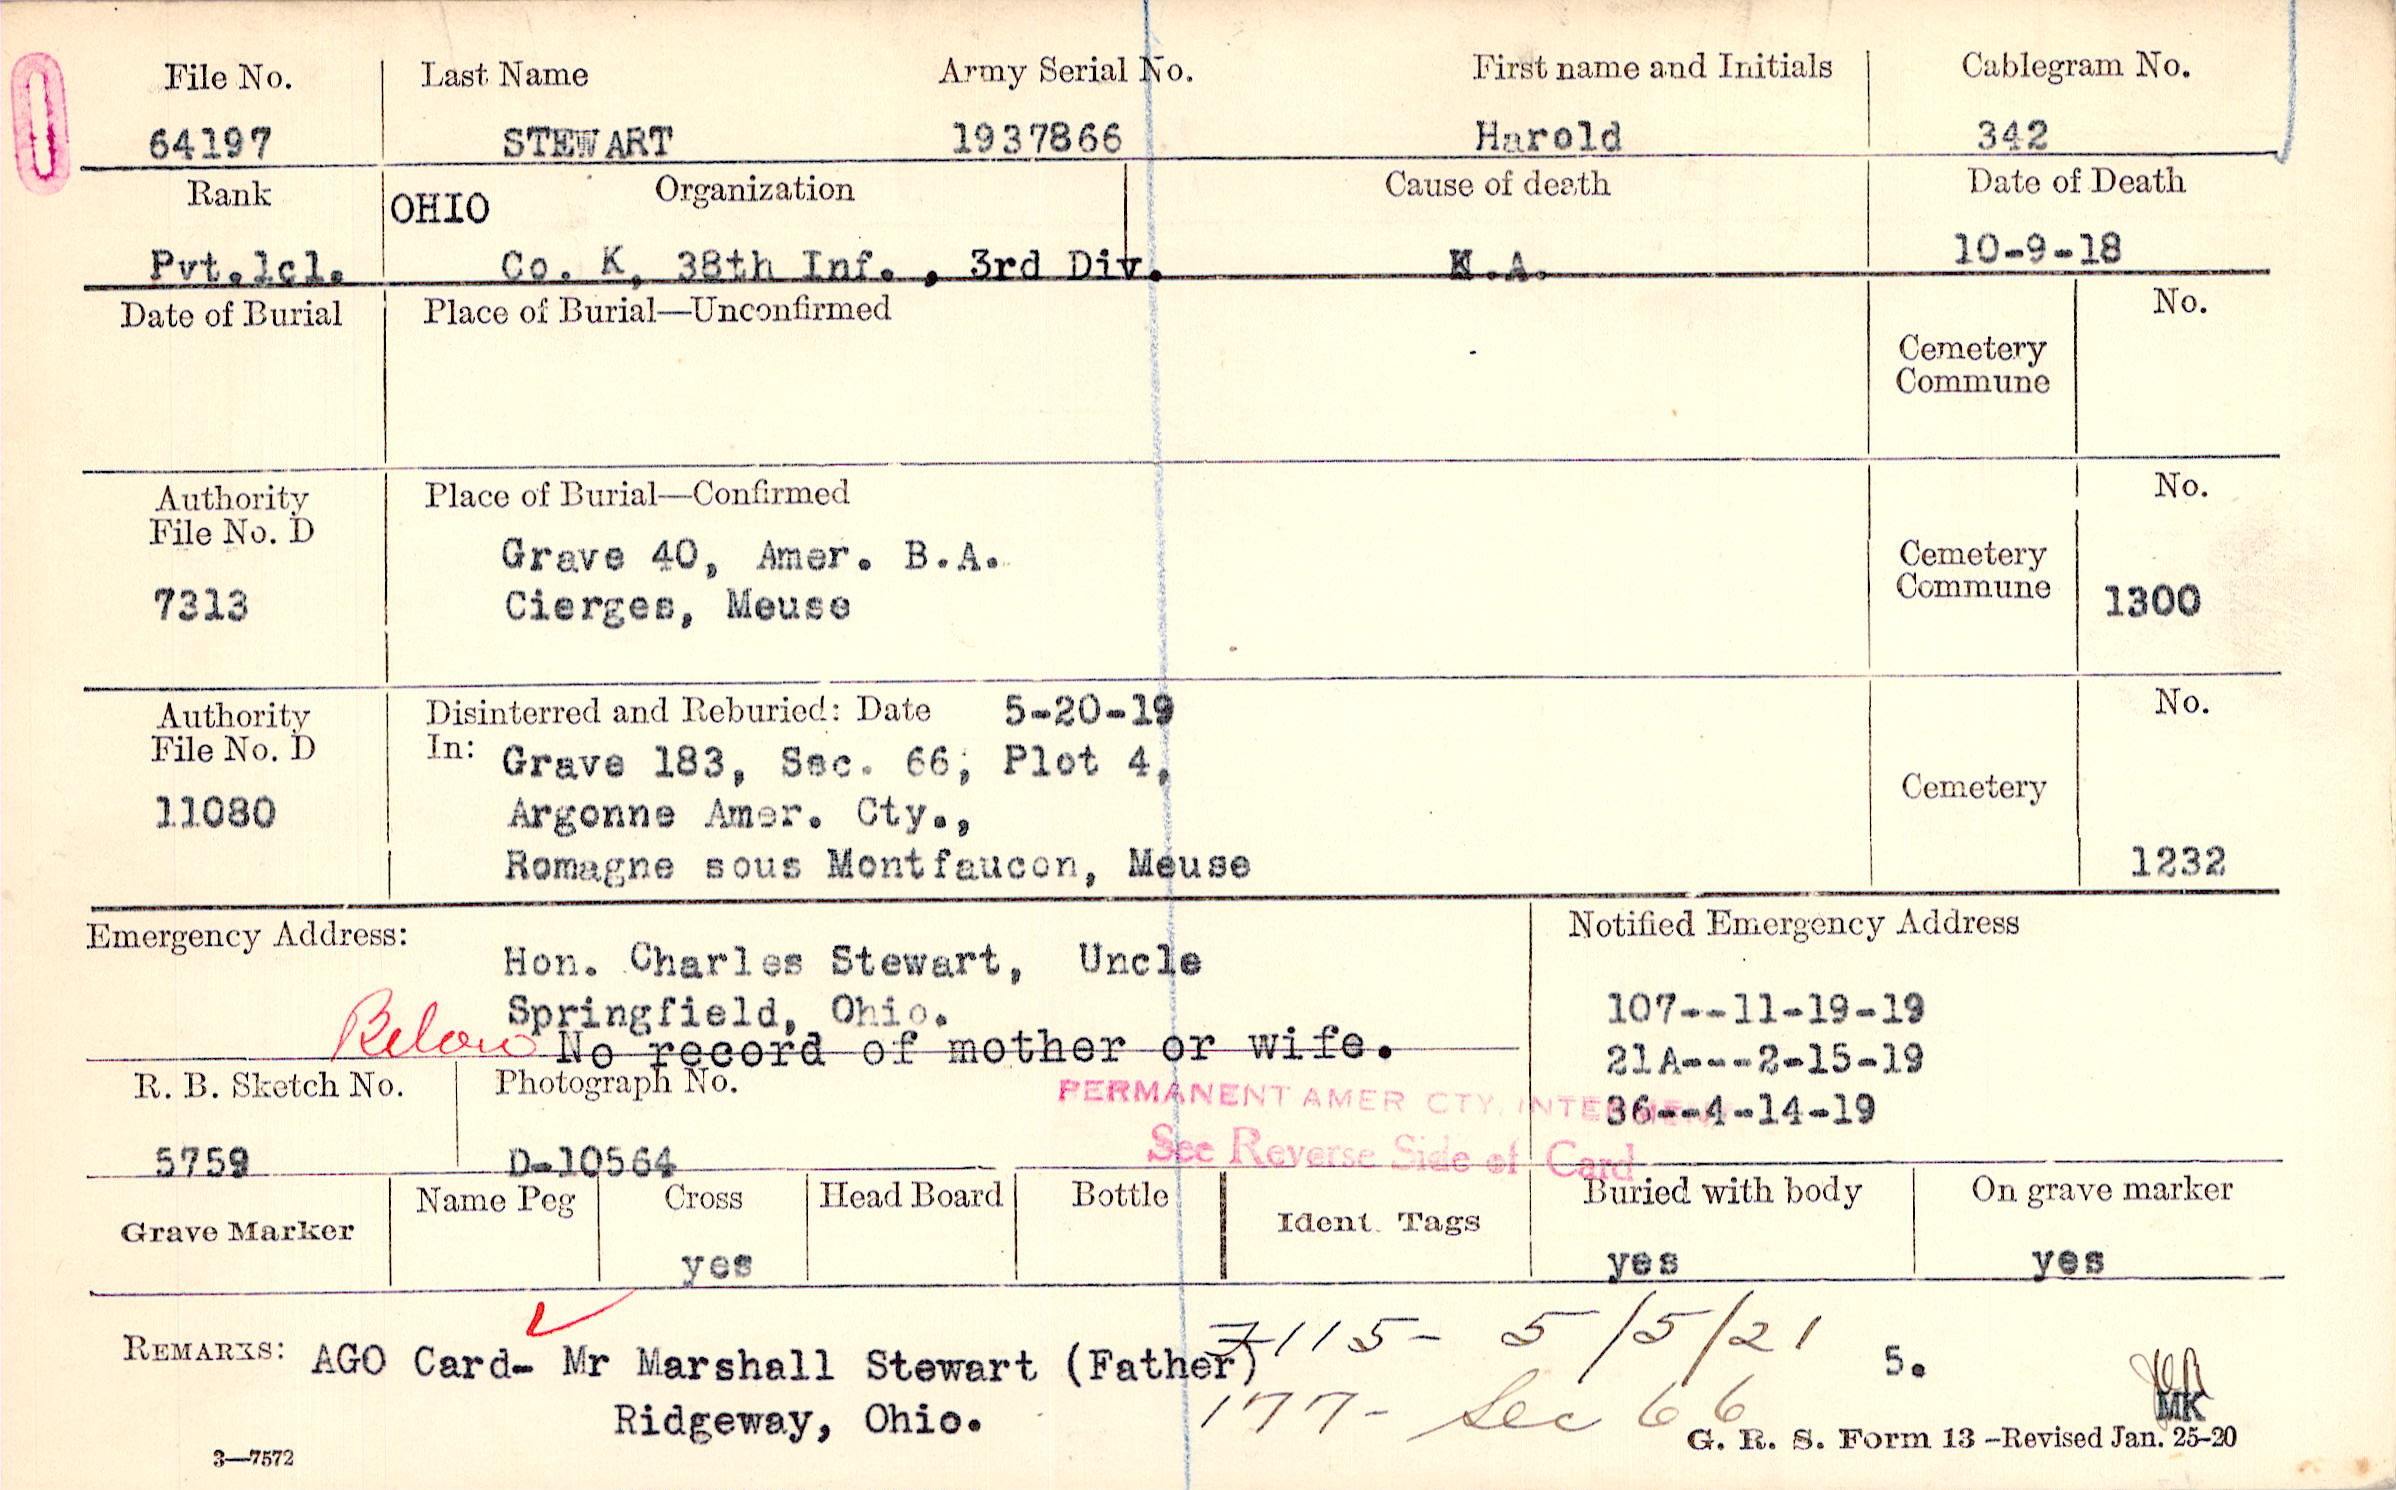 File No. Last Name Army Serial No. First name and Initials Cablegram No.
64197 STEWART 1937866 Harold 342
Rank Organization Cause of death Date of Death
OHIO
Pvt.1cl. Co. K, 38th Inf., 3rd Div. K.A. 10-9-18
Date of Burial Place of Burial—Unconfirmed No.
Cemetery
Commune
Authority Place of Burial—Confirmed No.
File No. D
Grave 40, Amer. B.A. Cemetery
7313 Cierges, Meuse Commune 1300
Authority Disinterred and Reburied: Date 5-20-19 No.
File No. D In: Grave 183, Sec. 66, Plot 4,
Cemetery
11080 Argonne Amer. Cty.,
Romagne sous Montfaucon, Meuse 1232
Emergency Address: Notified Emergency Address
Hon. Charles Stewart, Uncle
Springfield, Ohio. 107--11-19-19
Below No record of mother or wife. 21A---2-15-19
R. B. Sketch No. Photograph No. 36--4-14-19
PERMANENT AMER CTY. INTERMENT
See Reverse Side of Card
5759 D-10564
Grave Marker Name Peg Cross Head Board Bottle Ident. Tags Buried with body On grave marker
yes yes yes
REMARKS: AGO Card- Mr Marshall Stewart (Father) 115- 5/5/21 5.
Ridgeway, Ohio. 177- Sec 66 MK
3—7572 G. R. S. Form 13-Revised Jan. 25-20